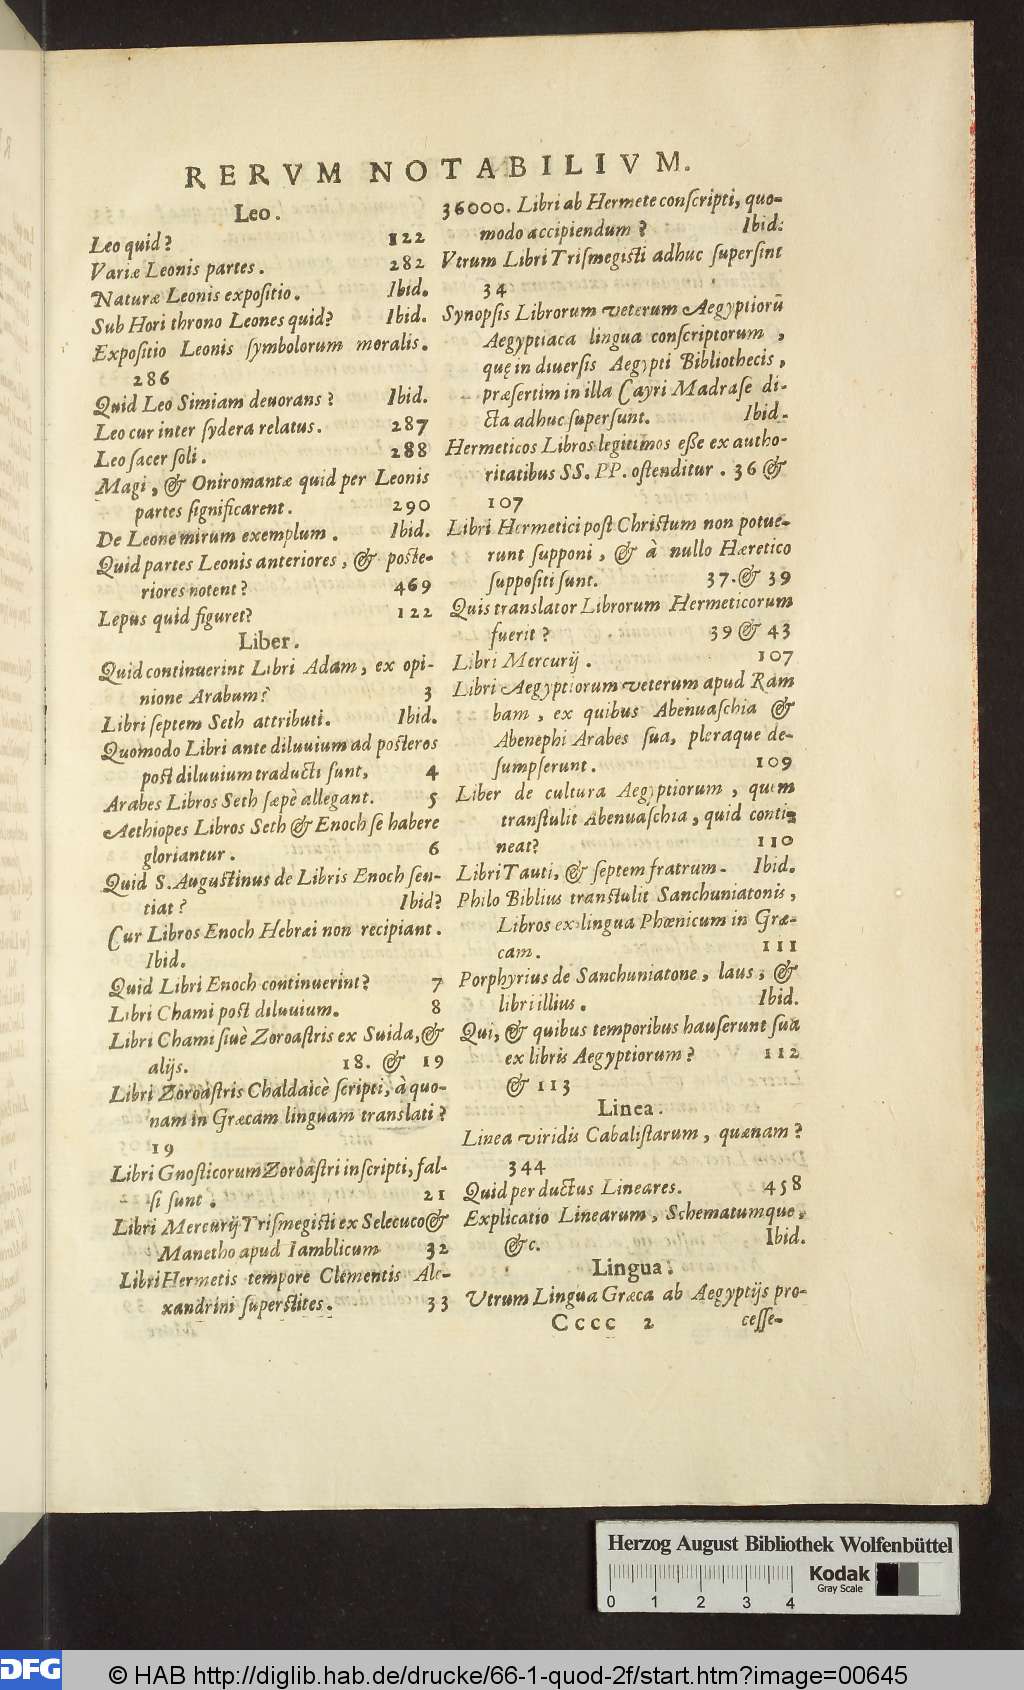 RERVM NOTABILIVM.
Leo.
Leo quid? 122
Variæ Leonis partes. 282
Naturæ Leonis expositio. Ibid.
Sub Hori throno Leones quid? Ibid.
Expositio Leonis symbolorum moralis.
286
Quid Leo Simiam deuorans? Ibid.
Leo cur inter sydera relatus. 287
Leo sacer soli. 288
Magi, & Oniromantæ quid per Leonis
partes significarent. 290
De Leone mirum exemplum. Ibid.
Quid partes Leonis anteriores, & poste-
riores notent? 469
Lepus quid figuret? 122
Liber.
Quid continuerint Libri Adam, ex opi-
nione Arabum? 3
Libri septem Seth attributi. Ibid.
Quomodo Libri ante diluuium ad posteros
post diluuium traducti sunt, 4
Arabes Libros Seth sæpè allegant. 5
Aethiopes Libros Seth & Enoch se habere
gloriantur. 6
Quid S. Augustinus de Libris Enoch sen-
tiat? Ibid?
Cur Libros Enoch Hebræi non recipiant.
Ibid.
Quid Libri Enoch continuerint? 7
Libri Chami post diluuium. 8
Libri Chami siuè Zoroastris ex Suida, &
alijs. 18. & 19
Libri Zoroastris Chaldaicè scripti, à quo-
nam in Græcam linguam translati?
19
Libri Gnosticorum Zoroastri inscripti, fal-
si sunt. 21
Libri Mercurij Trismegisti ex Seleuco &
Manetho apud Iamblicum 32
Libri Hermetis tempore Clementis Ale-
xandrini superstites. 33
36000. Libri ab Hermete conscripti, quo-
modo accipiendum? Ibid.
Vtrum Libri Trismegisti adhuc supersint
34
Synopsis Librorum veterum Aegyptiorũ
Aegyptiaca lingua conscriptorum,
quę in diuersis Aegypti Bibliothecis,
præsertim in illa Cayri Madrase di-
cta adhuc supersunt. Ibid.
Hermeticos Libros legitimos esse ex autho-
ritatibus SS. PP. ostenditur. 36 &
107
Libri Hermetici post Christum non potue-
runt supponi, & à nullo Hæretico
suppositi sunt. 37. & 39
Quis translator Librorum Hermeticorum
fuerit? 39 & 43
Libri Mercurij. 107
Libri Aegyptiorum veterum apud Ram
bam, ex quibus Abenuaschia &
Abenephi Arabes sua, pleraque de-
sumpserunt. 109
Liber de cultura Aegyptiorum, quem
transtulit Abenuaschia, quid conti-
neat? 110
Libri Tauti, & septem fratrum. Ibid.
Philo Biblius transtulit Sanchuniatonis,
Libros ex lingua Phœnicum in Græ-
cam. 111
Porphyrius de Sanchuniatone, laus, &
libri illius. Ibid.
Qui, & quibus temporibus hauserunt sua
ex libris Aegyptiorum? 112
& 113
Linea.
Linea viridis Cabalistarum, quænam?
344
Quid per ductus Lineares. 458
Explicatio Linearum, Schematumque,
&c. Ibid.
Lingua.
Vtrum Lingua Græca ab Aegyptijs pro-
Cccc 2 cesse-
Herzog August Bibliothek Wolfenbüttel
Kodak
Gray Scale
0 1 2 3 4
DFG © HAB http://diglib.hab.de/drucke/66-1-quod-2f/start.htm?image=00645